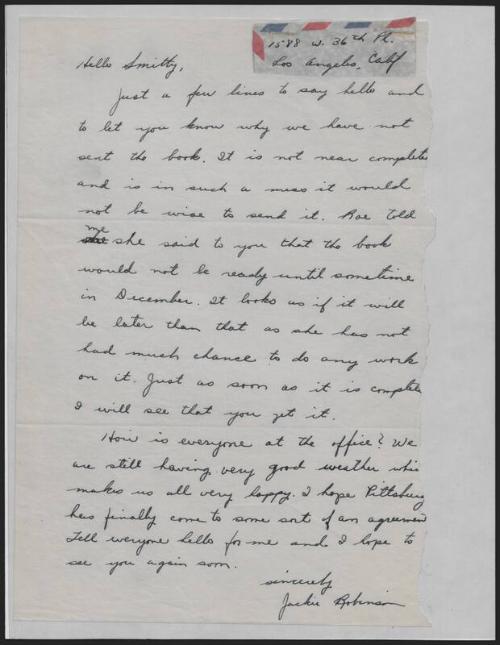 1588 W. 36th Pl.
Los Angeles, Calif
Hello Smitty,
Just a few lines to say hello and
to let you know why we have not
sent the book. It is not near complete
and is in such a mess it would
not be wise to send it. Rae told
me
she she said to you that the book
would not be ready until sometime
in December. It looks as if it will
be later than that as she has not
had much chance to do any work
on it. Just as soon as it is complete
I will see that you get it.
How is everyone at the office? We
are still having very good weather whi
makes us all very happy. I hope Pittsburg
has finally come to some sort of an agreemen
Tell everyone hello for me and I hope to
see you again soon.
sincerely
Jackie Robinson